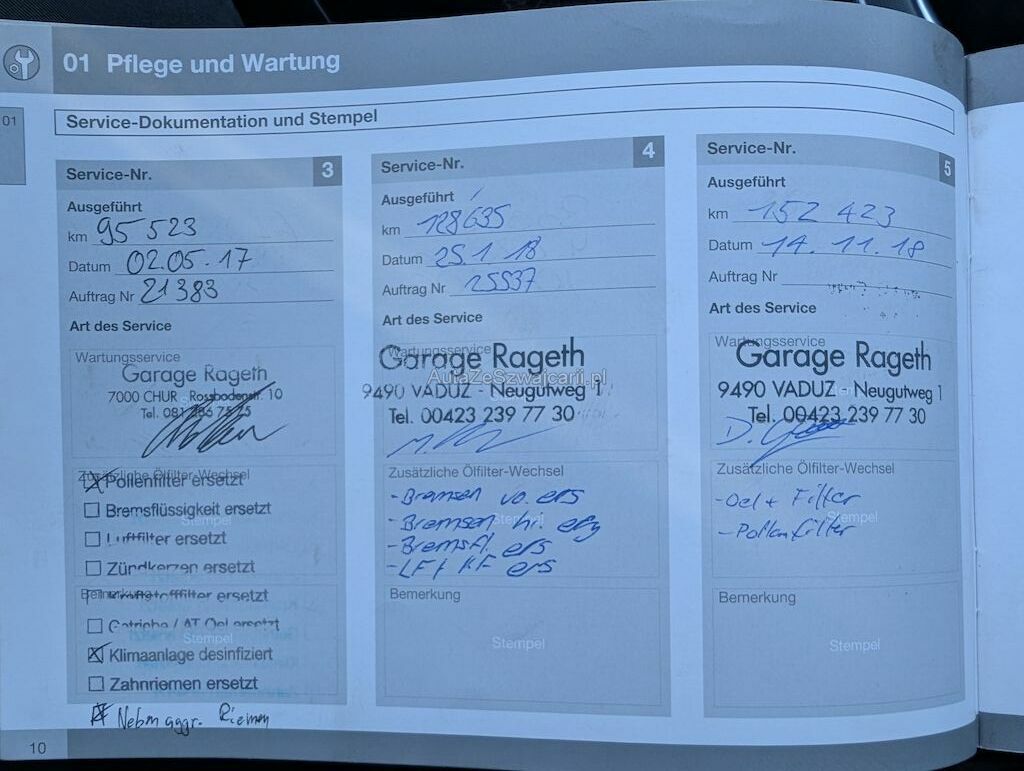 01 Pflege und Wartung
01
Service-Dokumentation und Stempel
Service-Nr. 3
Ausgeführt
km 95 523
Datum 02.05.17
Auftrag Nr 21383
Art des Service
Wartungsservice
Garage Rageth
7000 CHUR Rossbodenstr. 10
Tel. 081
Zusätzliche Ölfilter-Wechsel
Pollenfilter ersetzt
Bremsflüssigkeit ersetzt
Stempel
Luftfilter ersetzt
Zündkerzen ersetzt
Bemerkung
Kraftstofffilter ersetzt
Getriebe / AT Oel ersetzt
Stempel
Klimaanlage desinfiziert
Zahnriemen ersetzt
Nebenaggr. Riemen
10
Service-Nr. 4
Ausgeführt
km 128635
Datum 25.1.18
Auftrag Nr 25537
Art des Service
Wartungsservice
Garage Rageth
9490 VADUZ - Neugutweg 1
Tel. 00423 239 77 30
Zusätzliche Ölfilter-Wechsel
- Bremsen vo. ers
- Bremsen hi. ers
Stempel
- Bremsfl. ers
- LF + KF ers
Bemerkung
Stempel
Service-Nr. 5
Ausgeführt
km 152 423
Datum 14.11.18
Auftrag Nr
Art des Service
Wartungsservice
Garage Rageth
9490 VADUZ - Neugutweg 1
Tel. 00423 239 77 30
Zusätzliche Ölfilter-Wechsel
- Oel + Filter
Stempel
- Pollenfilter
Bemerkung
Stempel
AutaZeSzwajcarii.pl